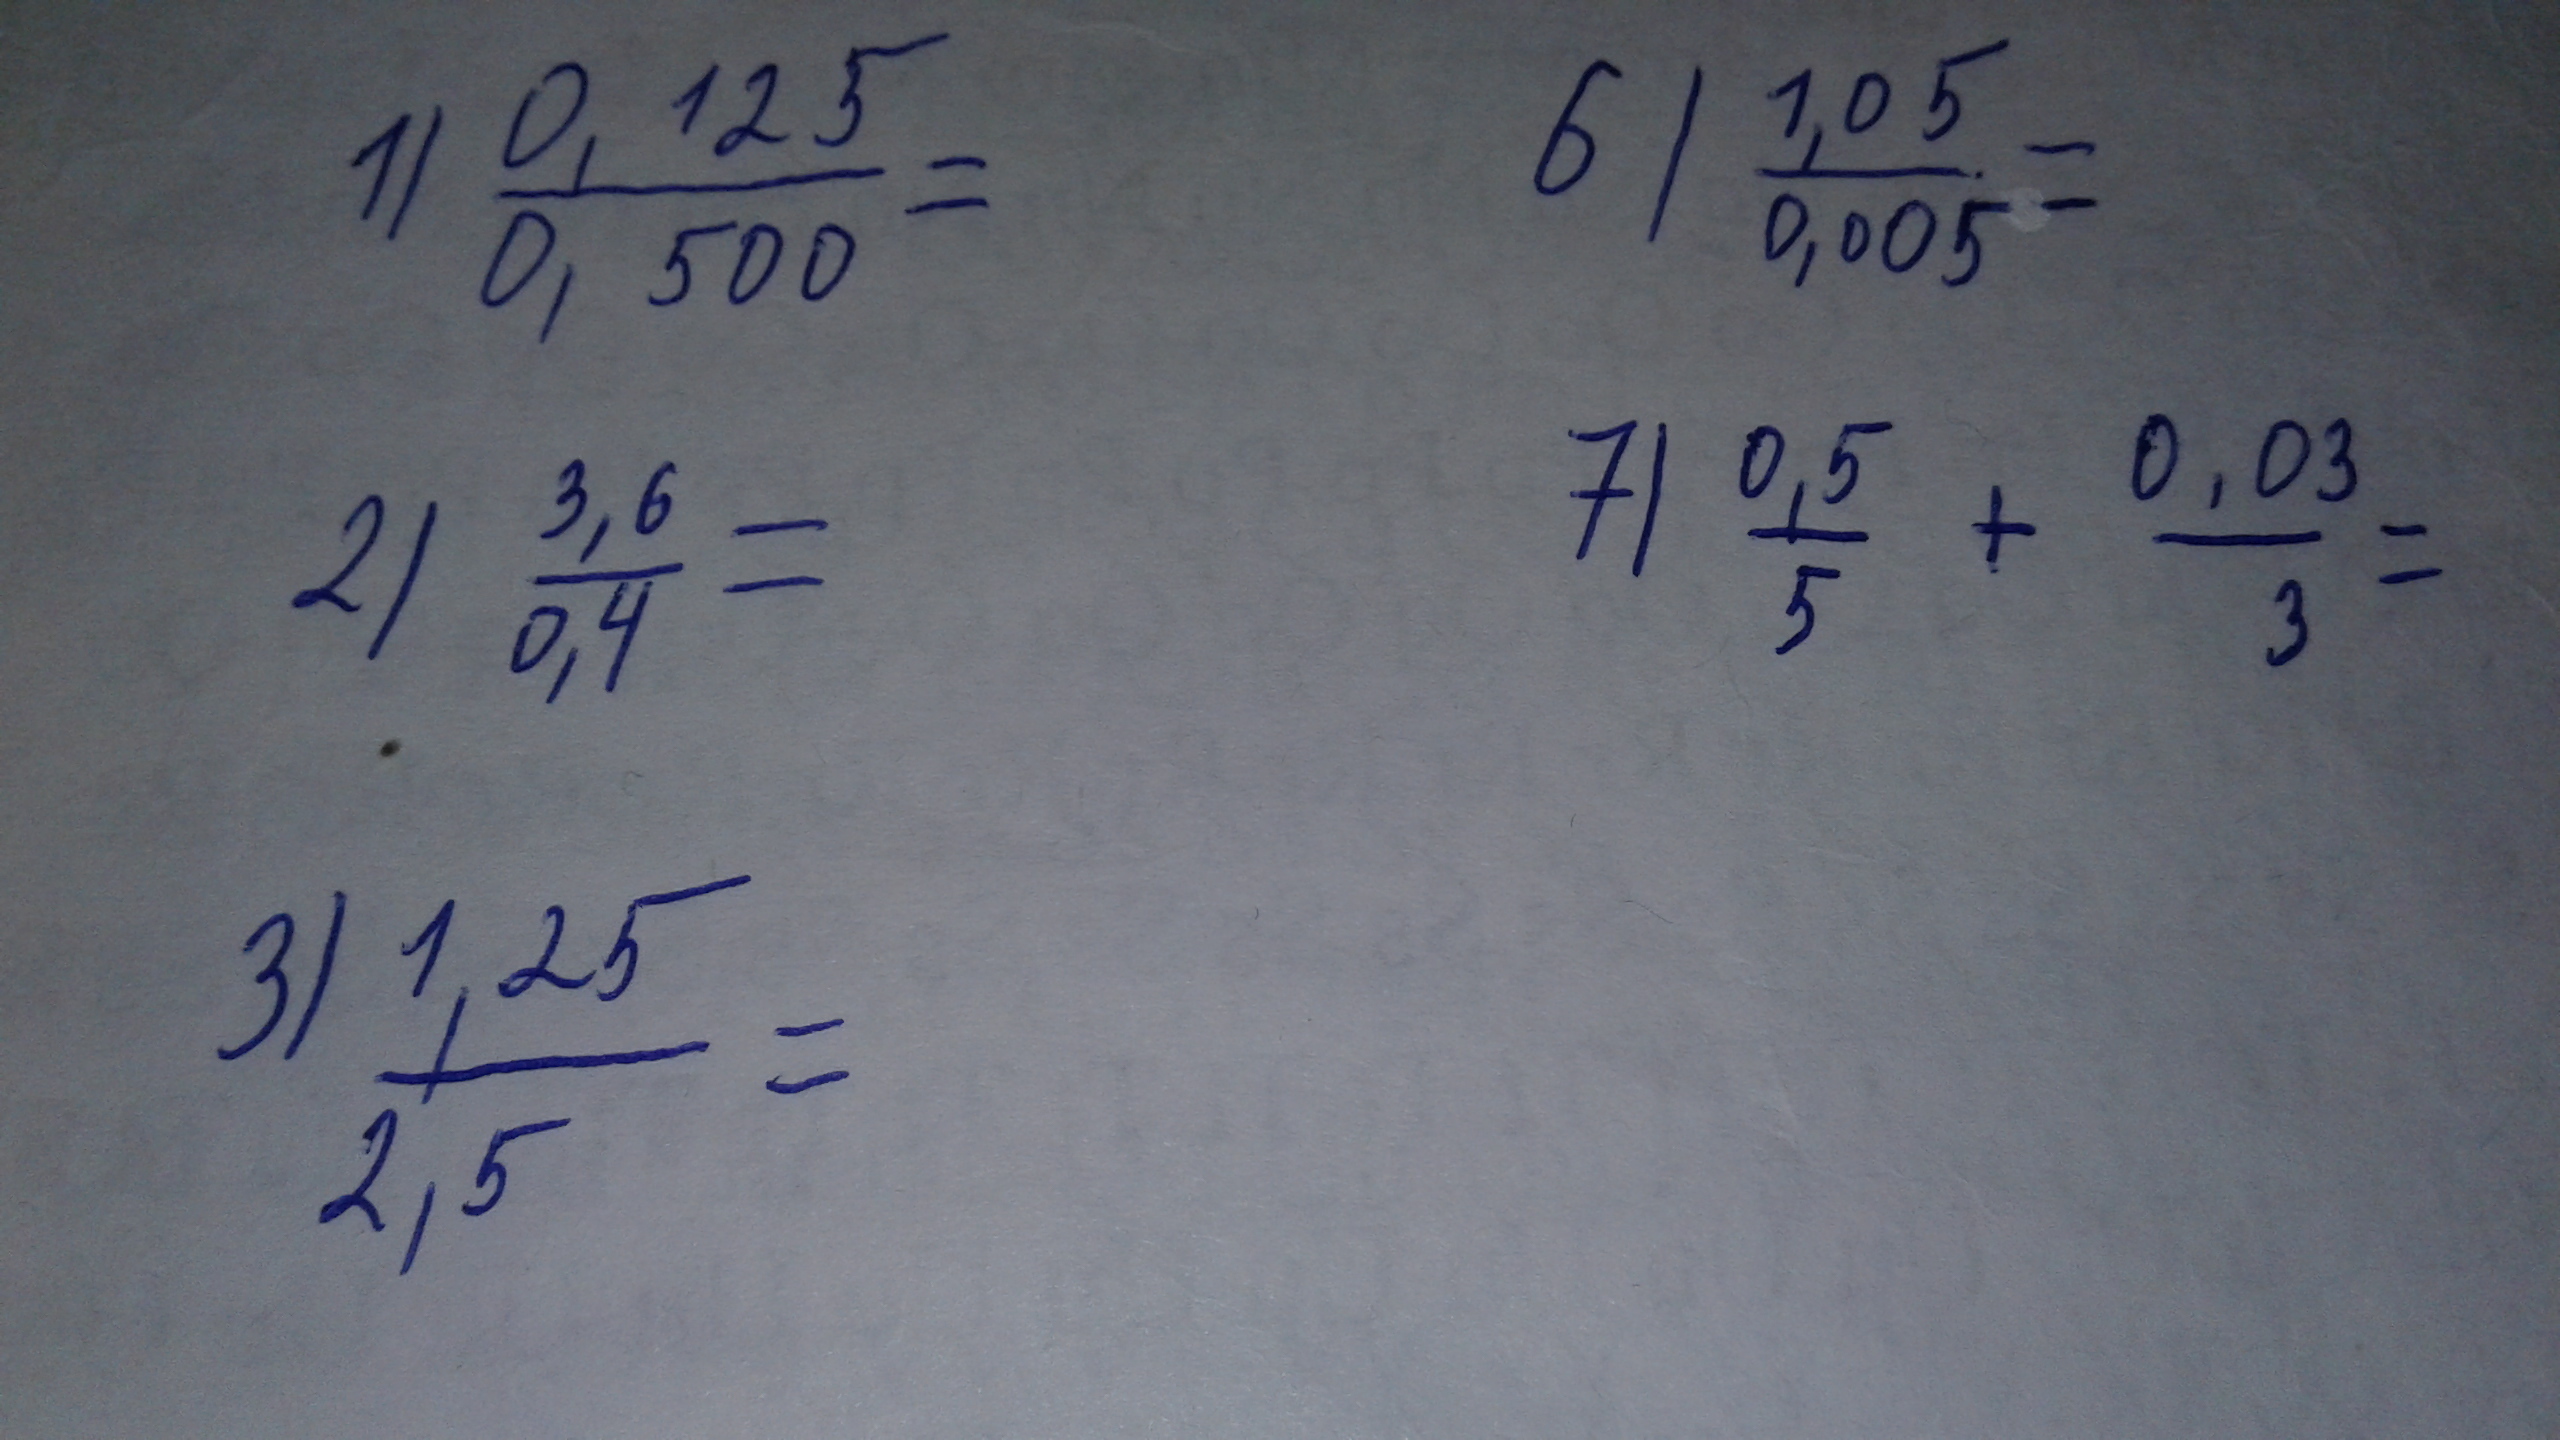 1) 0,125 / 0,500 =
2) 3,6 / 0,4 =
3) 1,25 / 2,5 =
6) 1,05 / 0,005 =
7) 0,5 / 5 + 0,03 / 3 =